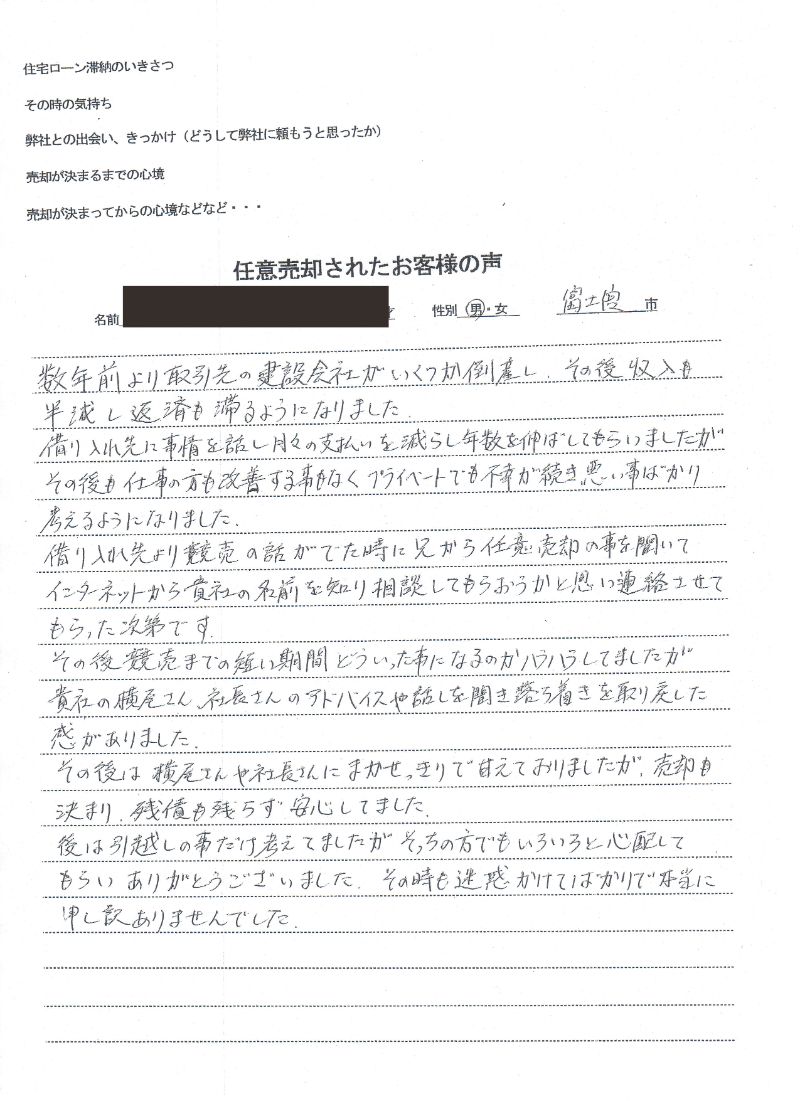 住宅ローン滞納のいきさつ
その時の気持ち
弊社との出会い、きっかけ（どうして弊社に頼もうと思ったか）
売却が決まるまでの心境
売却が決まってからの心境などなど・・・
任意売却されたお客様の声
名前 性別 男・女 富士宮 市
数年前より取引先の建設会社がいくつか倒産し、その後収入も
半減し返済も滞るようになりました。
借り入れ先に事情を話し月々の支払いを減らし年数を伸ばしてもらいましたが
その後も仕事の方も改善する事もなくプライベートでも不幸が続き、悪い事ばかり
考えるようになりました。
借り入れ先より競売の話がでた時に兄から任意売却の事を聞いて
インターネットから貴社の名前を知り相談してもらおうかと思い連絡させて
もらった次第です。
その後競売までの短い期間どういった事になるのかハラハラしてましたが
貴社の横尾さん、社長さんのアドバイスや話しを聞き落ち着きを取り戻した
感がありました。
その後は横尾さんや社長さんにまかせっきりで甘えておりましたが、売却も
決まり、残債も残らず安心してました。
後は引越しの事だけ考えてましたがそっちの方でもいろいろと心配して
もらいありがとうございました。その時も迷惑かけてばかりで本当に
申し訳ありませんでした。